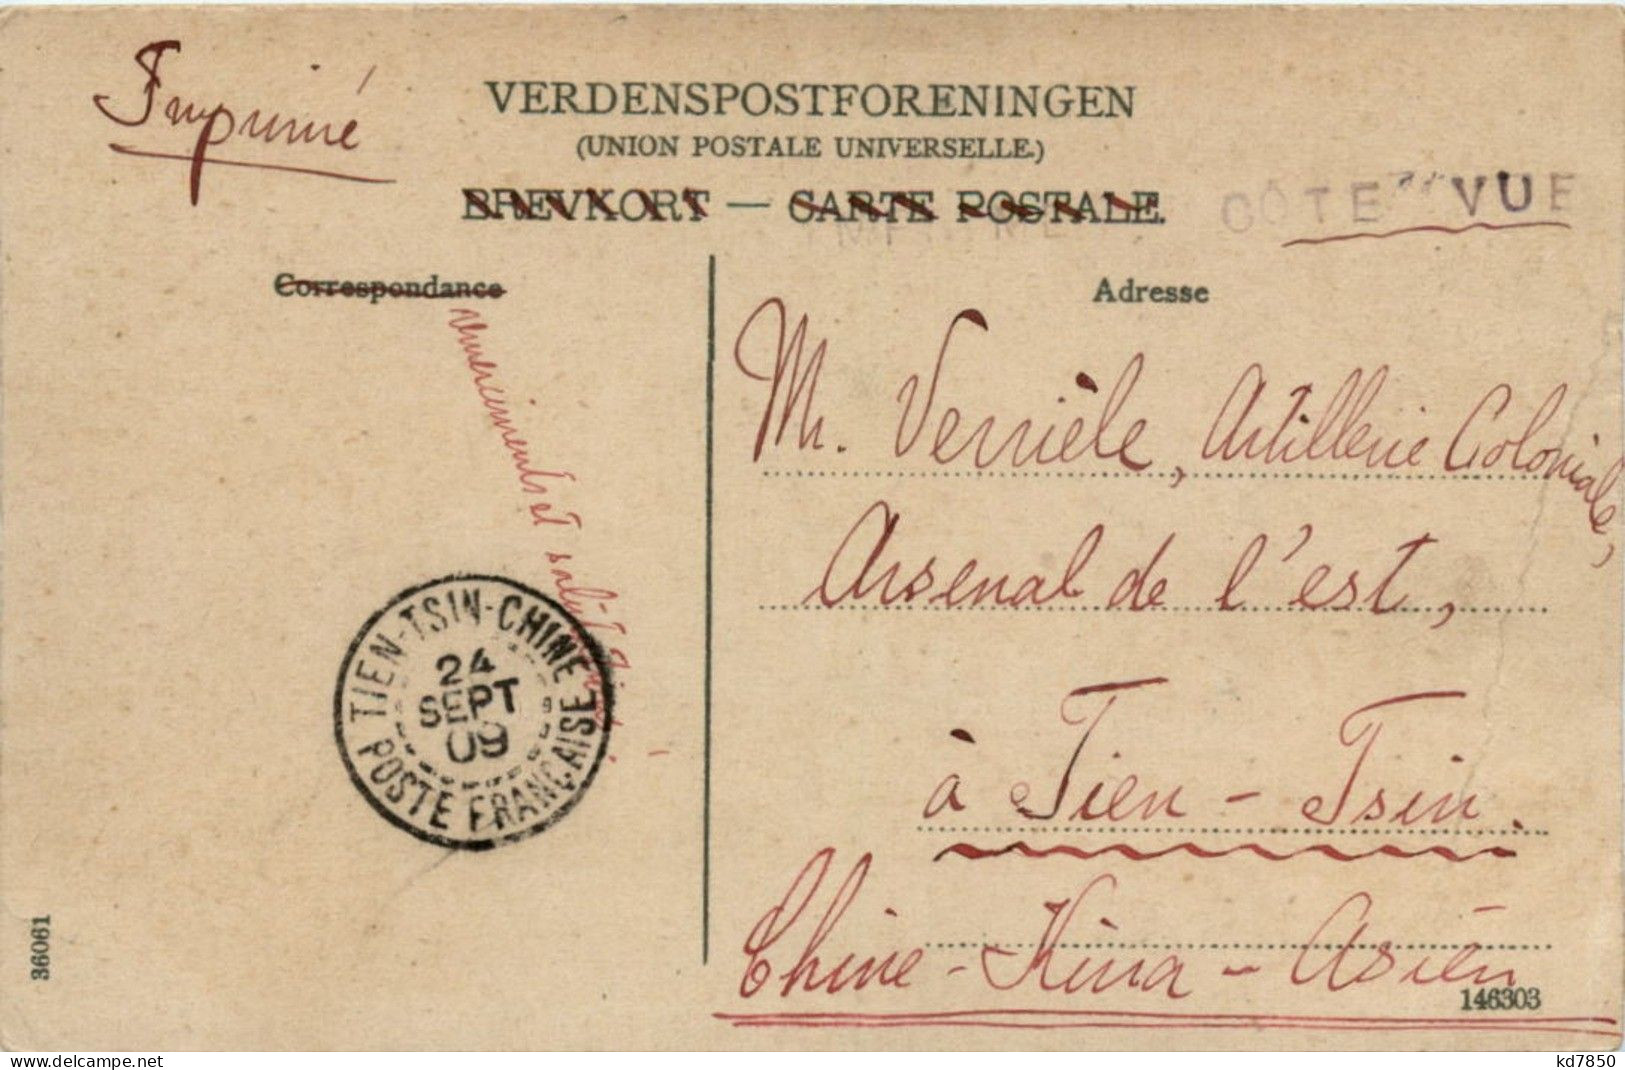 Imprimé
VERDENSPOSTFORENINGEN
(UNION POSTALE UNIVERSELLE.)
BREVKORT — CARTE POSTALE.
CÔTÉ VUE
Correspondance
Adresse
remerciments et salut
M. Verrièle, Artillerie Coloniale,
Arsenal de l'est,
à Tien-Tsin.
Chine - Kina - Asien
TIEN-TSIN-CHINE
24
SEPT
09
POSTE FRANÇAISE
36061
146303
delcampe.net
kd7850